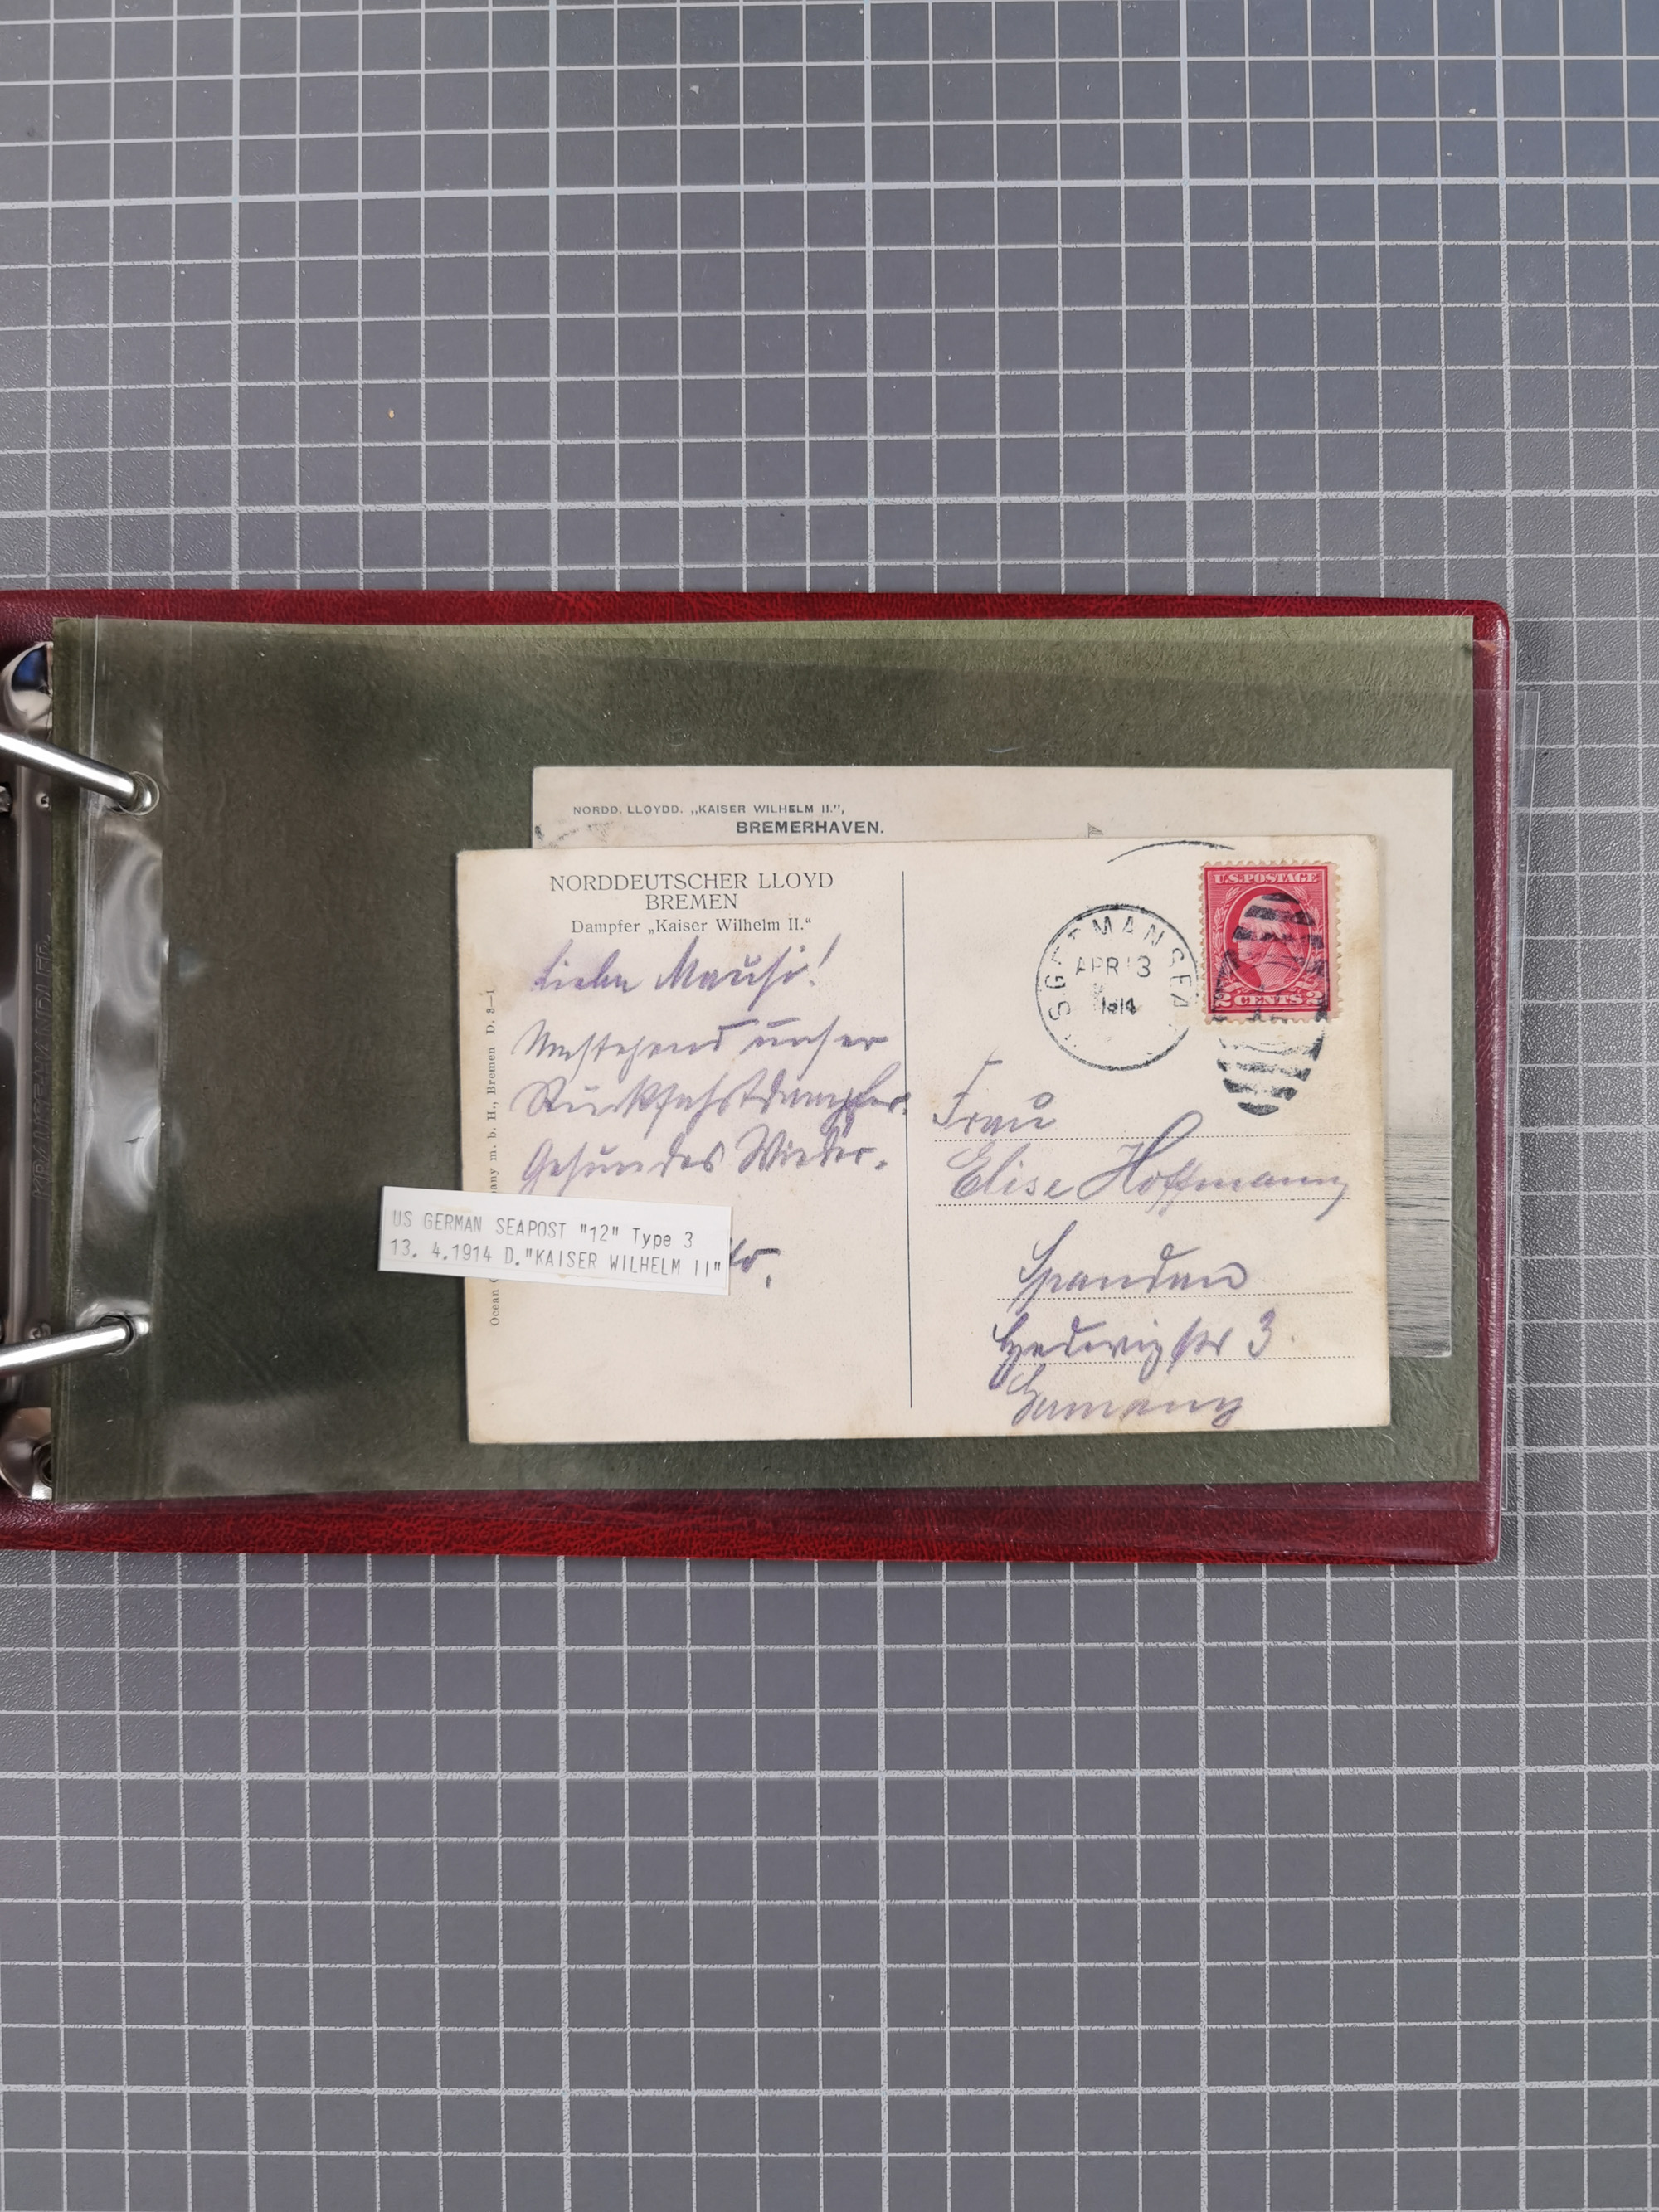 NORDD. LLOYDD. „KAISER WILHELM II.",
BREMERHAVEN.
NORDDEUTSCHER LLOYD
BREMEN
Dampfer „Kaiser Wilhelm II."
Liebe Mausi!
Umstehend unser
Rückfahrtdampfer.
Gesundes Wieder.
US GERMAN SEAPOST "12" Type 3
13. 4.1914 D."KAISER WILHELM II"
any m. b. H., Bremen D. 3—1
Ocean
U.S. POSTAGE
2 CENTS 2
GERMAN SEA
APR 13
1914
Frau
Elise Hoffmann
Spandau
Hedwigstr 3.
Germany